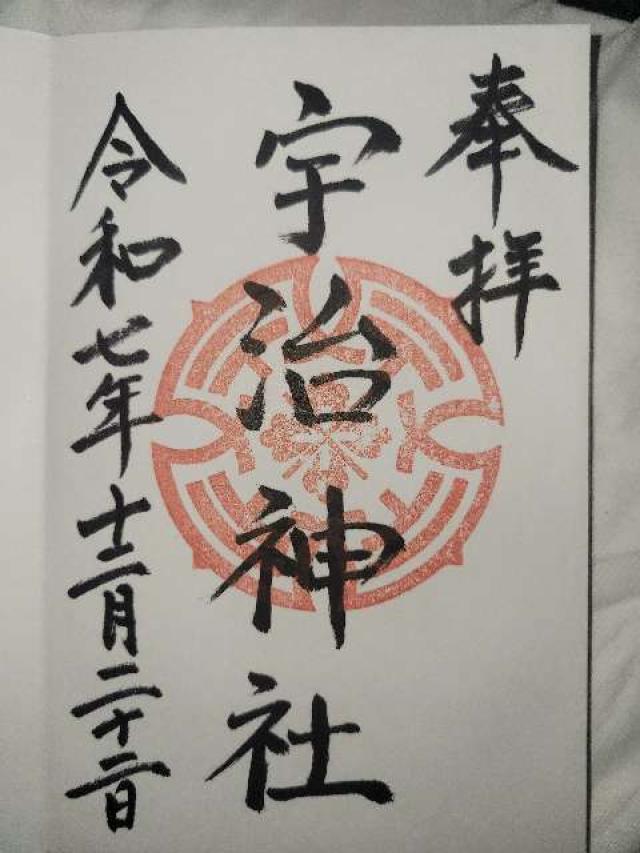 奉拝
宇治神社
令和七年十二月二十二日